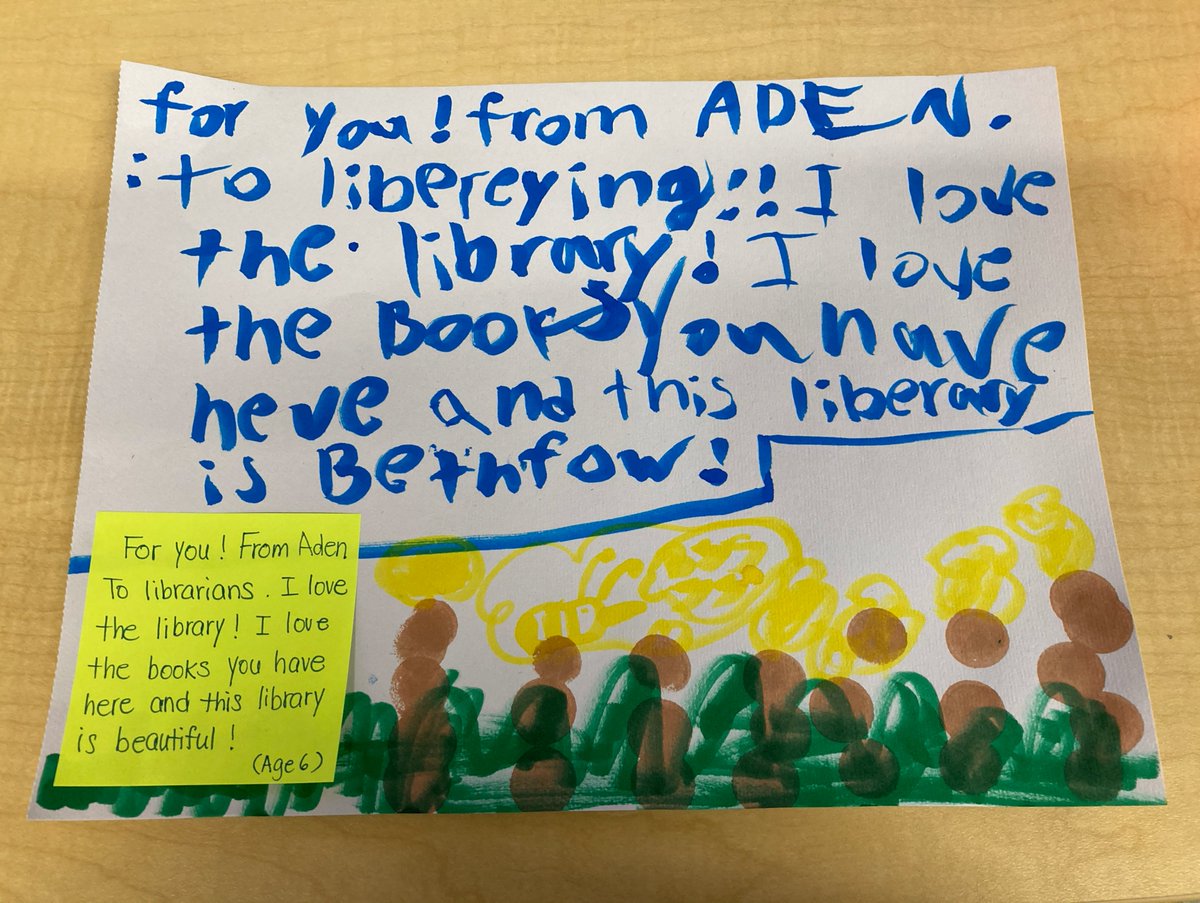 for you! from ADEN.
: to libercying!!! I love
the library! I love
the Books you have
heve and this liberary
is Bethfow!
For you! From Aden
To librarians. I love
the library! I love
the books you have
here and this library
is beautiful!
(Age 6)